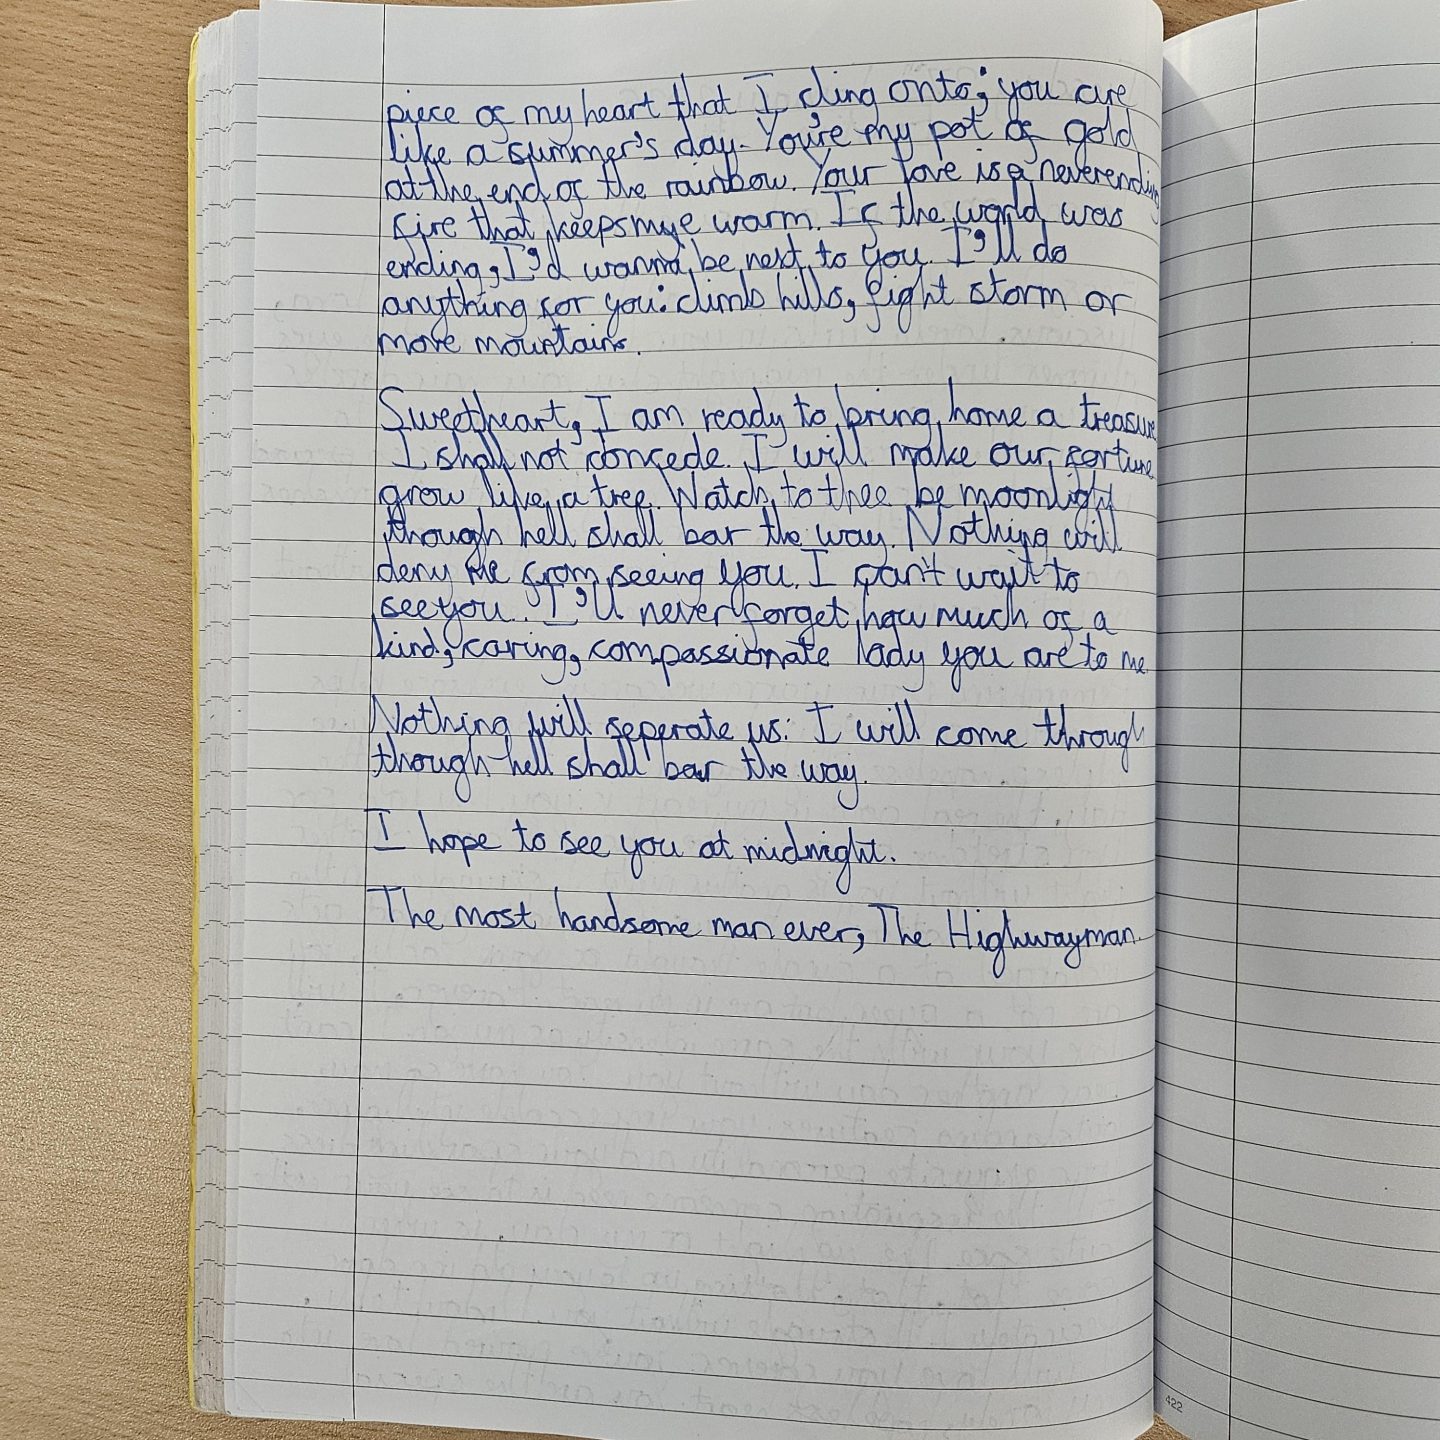 piece of my heart that I cling onto; you are
like a summer's day. You're my pot of gold
at the end of the rainbow. Your love is a neverending
fire that keeps mye warm. If the world was
ending, I'd wanna be next to you. I'll do
anything for you: climb hills, fight storm or
move mountains.
Sweetheart, I am ready to bring home a treasure
I shall not concede. I will make our fortune
grow like a tree. Watch to thee be moonlight
though hell shall bar the way. Nothing will
deny me from seeing you. I can't wait to
see you. I'll never forget how much of a
kind, caring, compassionate lady you are to me.
Nothing will seperate us: I will come through
though hell shall bar the way.
I hope to see you at midnight.
The most handsome man ever, The Highwayman.
422